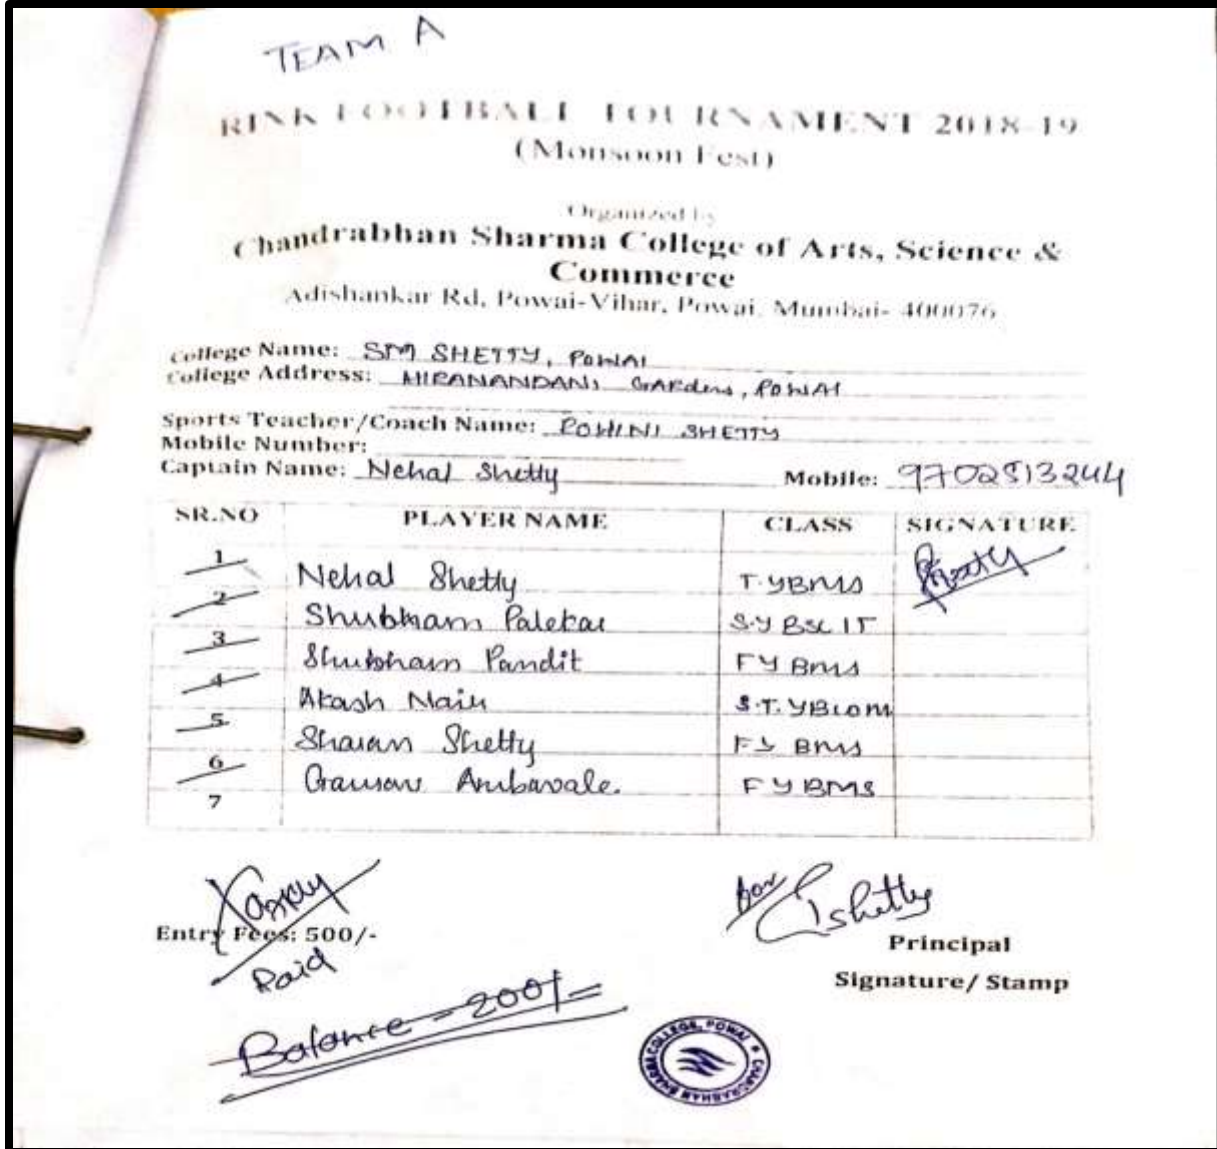 TEAM A
RINK FOOTBALL TOURNAMENT 2018-19
(Monsoon Fest)
Organized by
Chandrabhan Sharma College of Arts, Science &
Commerce
Adishankar Rd, Powai-Vihar, Powai, Mumbai- 400076
College Name: SM SHETTY, POWAI
College Address: HIRANANDANI GARdens, POWAI
Sports Teacher/Coach Name: ROHINI SHETTY
Mobile Number:
Captain Name: Nehal Shetty Mobile: 9702513244
SR.NO PLAYER NAME CLASS SIGNATURE
1 Nehal Shetty T.YBMS
2 Shubham Palekar S.Y BSC IT
3 Shubham Pandit FY BMS
4 Akash Nair S.T.YBCOM
5 Sharan Shetty FY BMS
6 Ambavale. FYBMS
7
Entry Fees: 500/-
Paid
Balance - 200/-
for Shetty
Principal
Signature/ Stamp
CHANDRABHAN SHARMA COLLEGE, POWAI